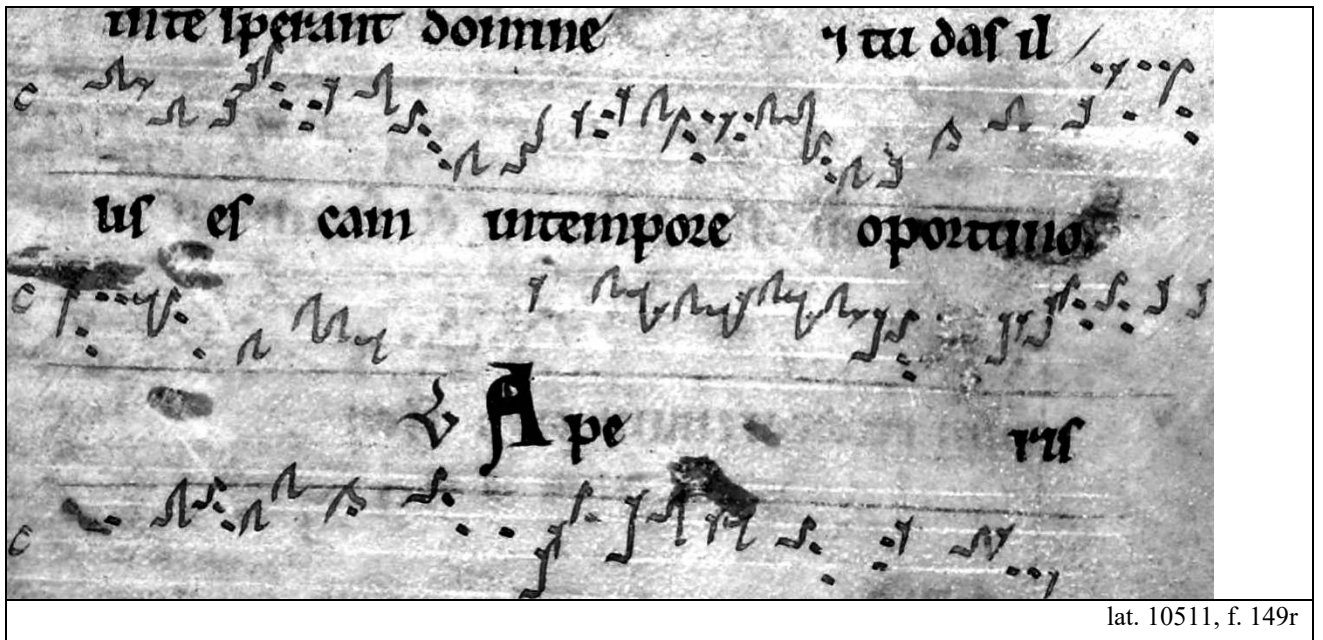 inte sperant domine ⁊ tu das il
c
lis es cam intempore oportuno
c
℣ Ape ris
c
lat. 10511, f. 149r